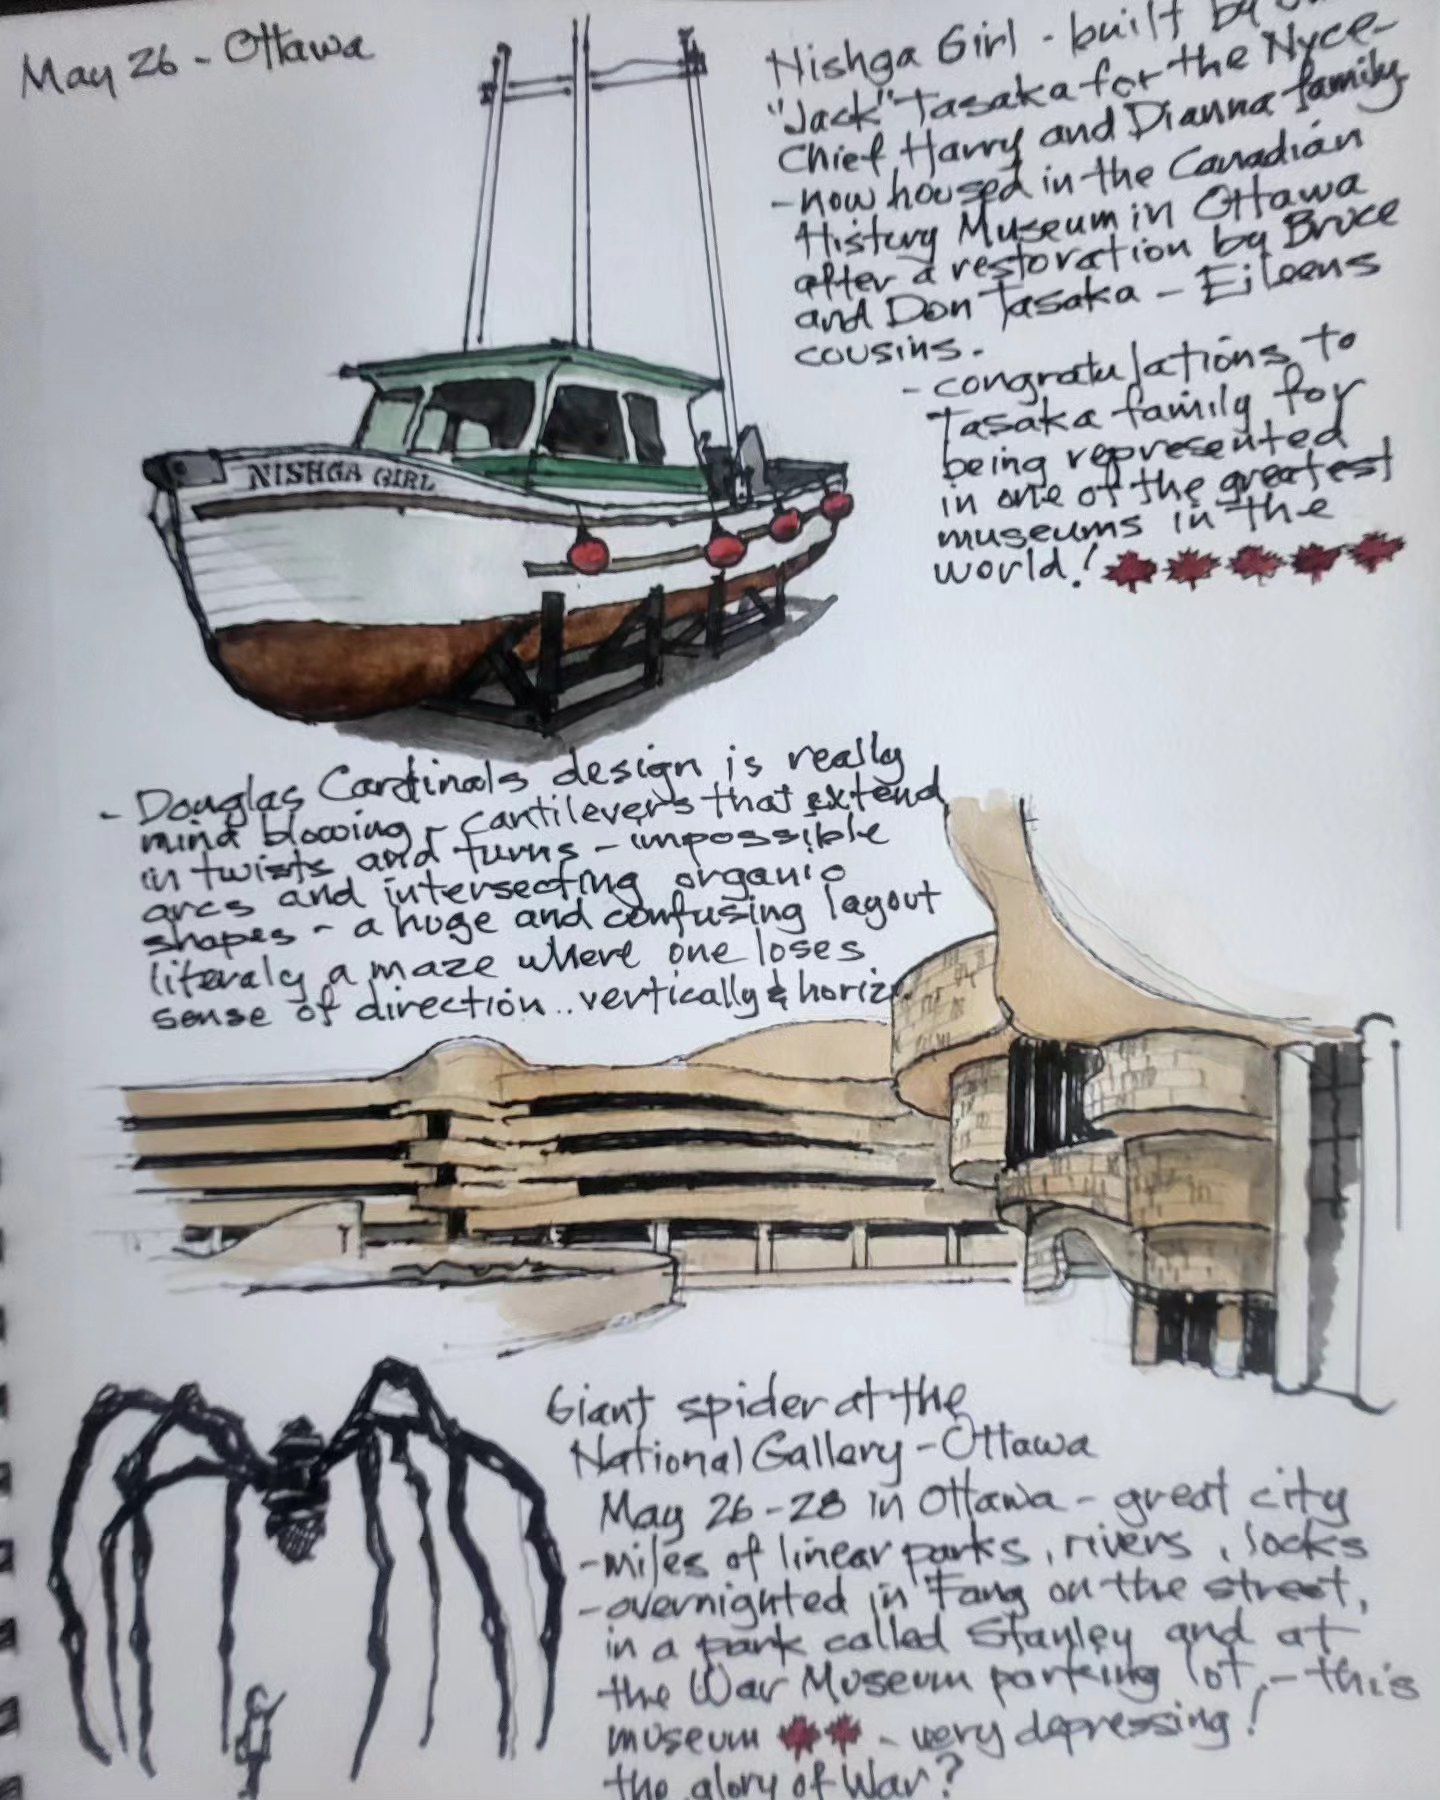 May 26 - Ottawa
Nishga Girl - built by
"Jack" Tasaka for the Nyce-
Chief Harry and Dianna family
- now housed in the Canadian
History Museum in Ottawa
after a restoration by Bruce
and Don Tasaka - Eileens
cousins.
- congratulations to
Tasaka family for
being represented
in one of the greatest
museums in the
world!
NISHGA GIRL
- Douglas Cardinals design is really
mind blowing - cantilevers that extend
in twists and turns - impossible
arcs and intersecting organic
shapes - a huge and confusing layout
literaly a maze where one loses
sense of direction.. vertically & horiz
Giant spider at the
National Gallery - Ottawa
May 26-28 in Ottawa - great city
- miles of linear parks, rivers, locks
- overnighted in Fang on the street,
in a park called Stanley and at
the War Museum parking lot, - this
museum - very depressing!
the glory of War?